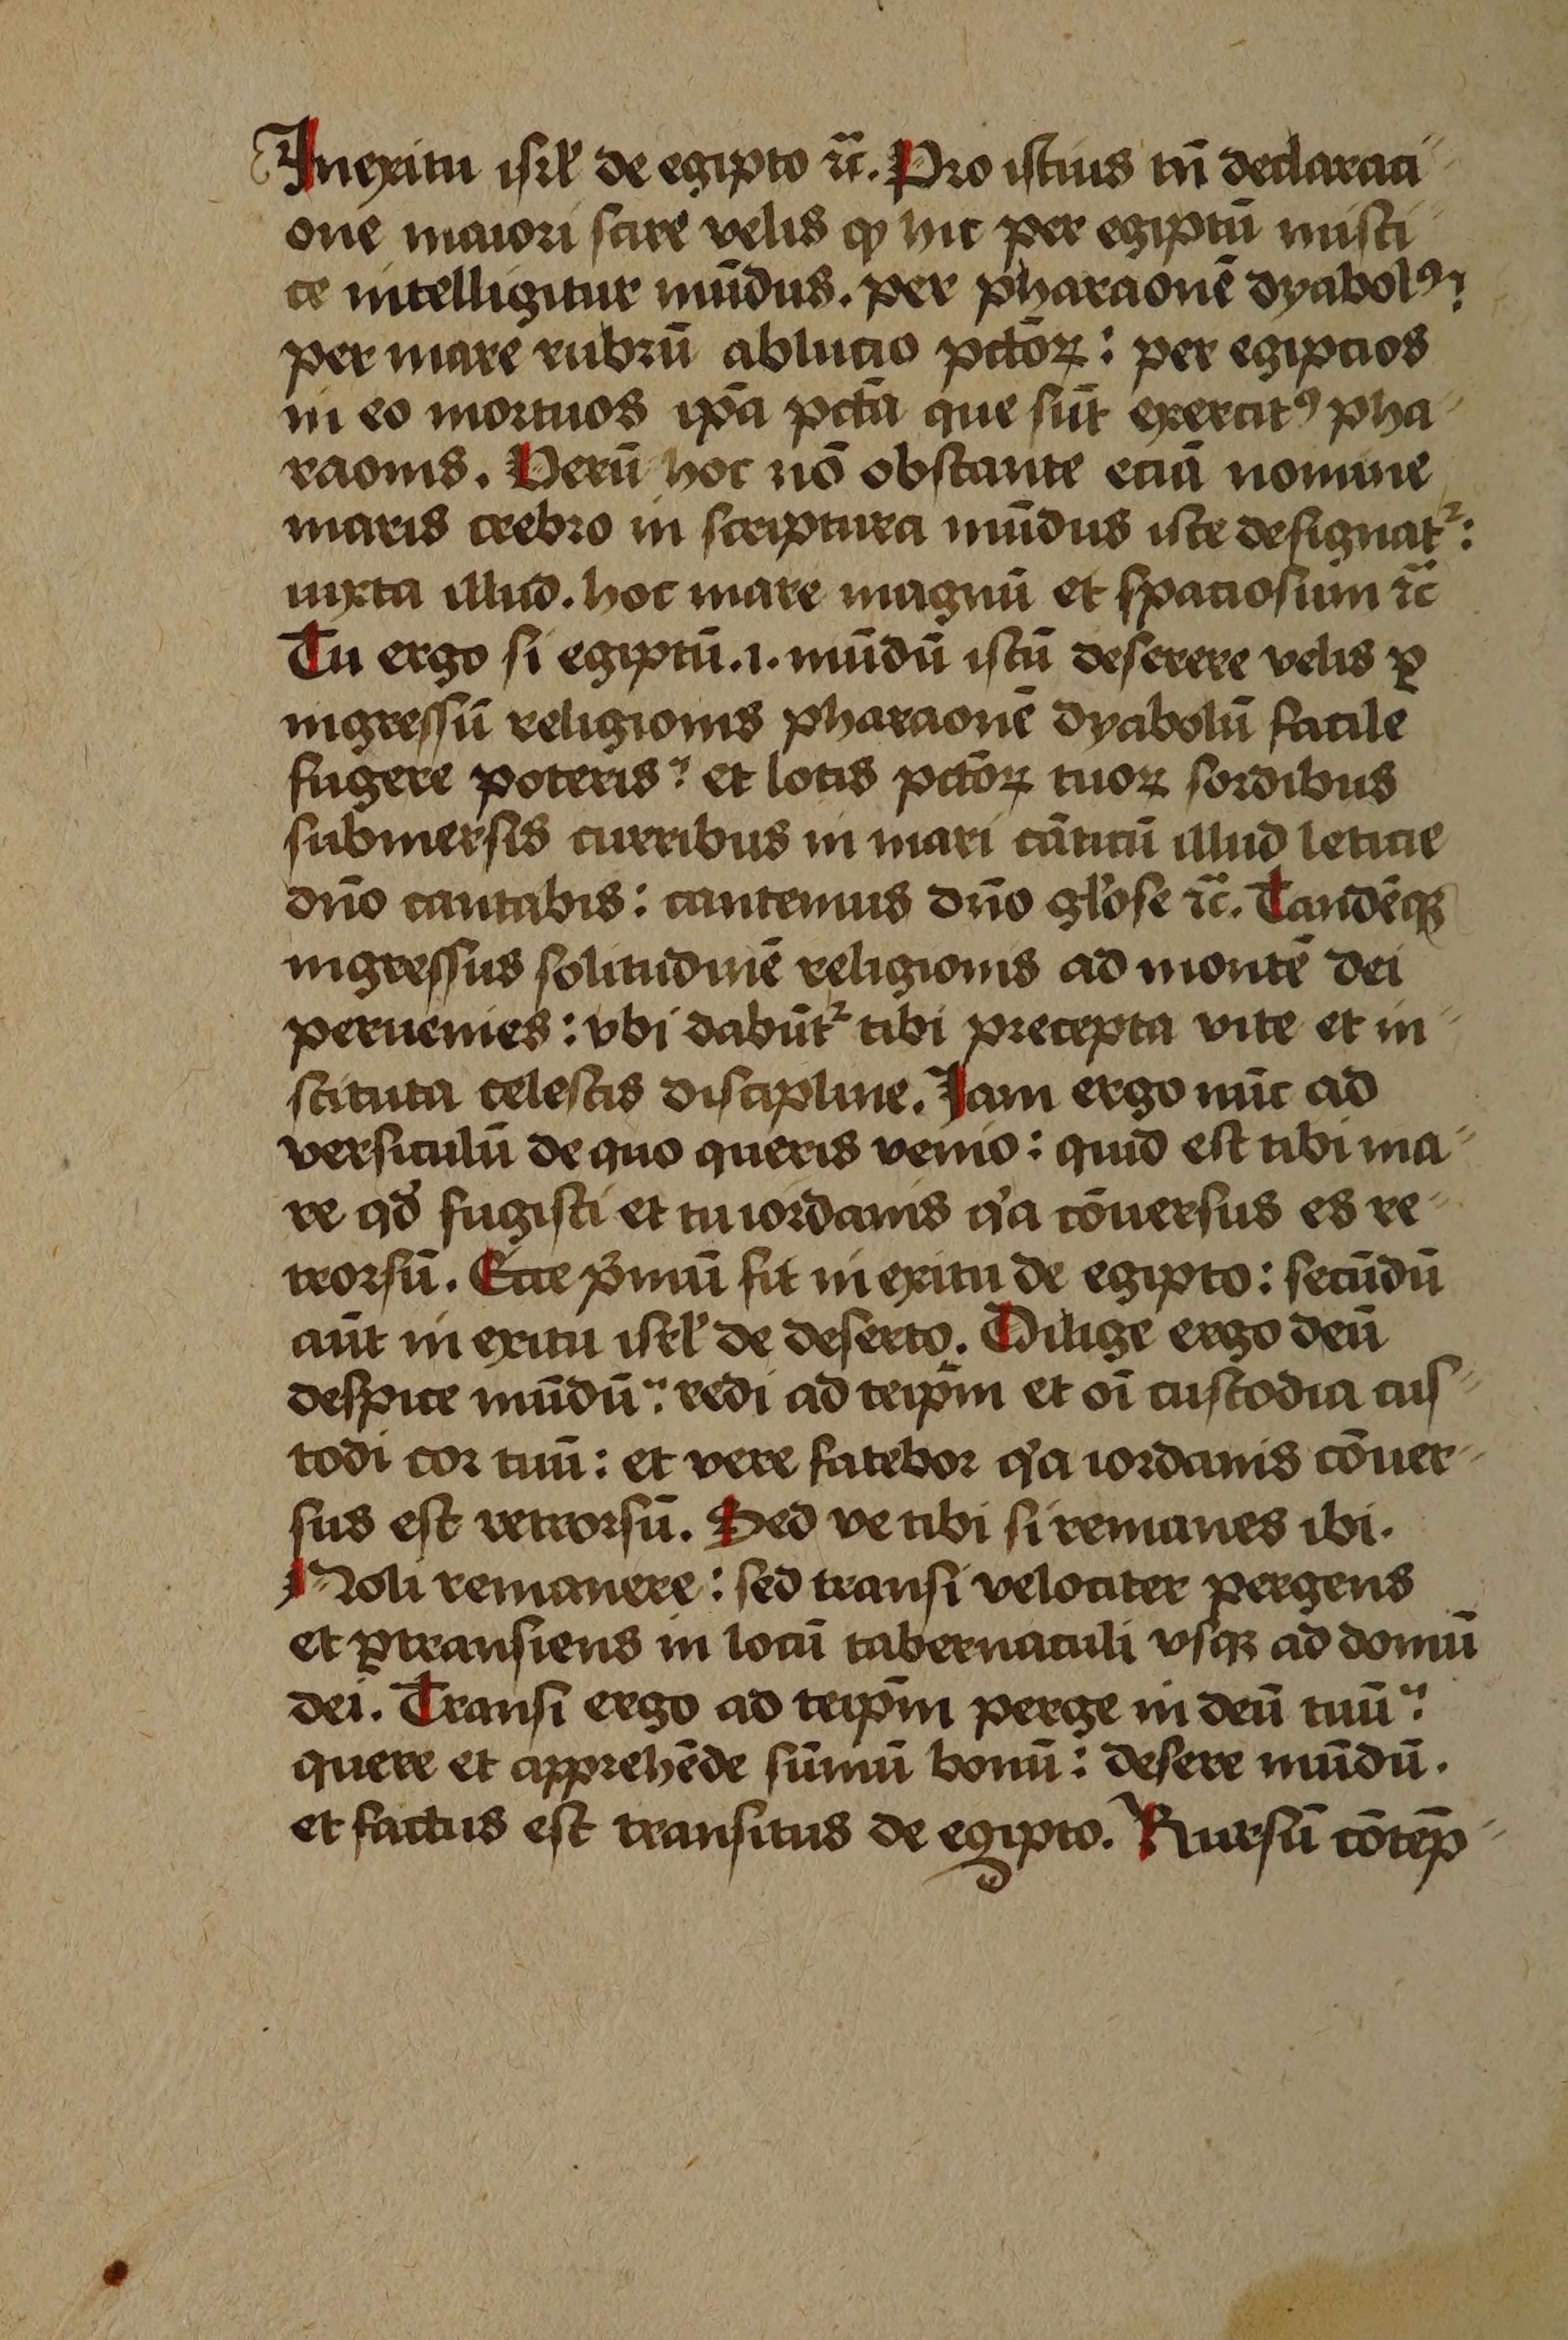 In exitu isrl̄ de egipto ⁊c̄. Pro istius tn̄ declaraci-
one maiori scire velis ꝙ hic per egiptū misti-
ce intelligitur mūdus. per pharaonē dyabolꝰ:
per mare rubrū ablucio pctōꝝ: per egipcios
in eo mortuos ip̄a pctā que sūt exercitꝰ pha-
raonis. Verū hoc nō obstante eciā nomine
maris crebro in scriptura mūdus iste designat᷑:
iuxta illud. hoc mare magnū et spaciosum ⁊c̄
Tu ergo si egiptū .i. mūdū istū deserere velis ꝑ
ingressū religionis pharaonē dyabolū facile
fugere poteris: et lotis pctōꝝ tuoꝝ sordibus
submersis curribus in mari cāticū illud leticie
dn̄o cantabis: cantemus dn̄o gl'ose ⁊c̄. Tandēqꝫ
ingressus solitudinē religionis ad montē dei
peruenies: vbi dabūt᷑ tibi precepta vite et in-
stituta celestis discipline. Iam ergo nūc ad
versiculū de quo queris venio: quid est tibi ma-
re qd̄ fugisti et tu iordanis q'a cōuersus es re-
trorsū. Ecce p'mū fit in exitu de egipto: secūdū
aūt in exitu isrl̄ de deserto. Dilige ergo deū
despice mūdū: redi ad teip̄m et oī custodia cus-
todi cor tuū: et vere fatebor q'a iordanis cōuer-
sus est retrorsū. Sed ve tibi si remanes ibi.
Noli remanere: sed transi velociter pergens
et ꝑtransiens in locū tabernaculi vsqꝫ ad domū
dei. Transi ergo ad teip̄m perge in deū tuū:
quere et apprehēde sūmū bonū: desere mūdū.
et factus est transitus de egipto. Rursū cōtēp-